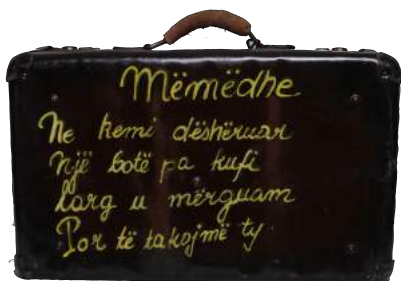 Mëmëdhe
Ne kemi dëshëruar
Një botë pa kufi
Larg u mërguam
Por të takojmë ty